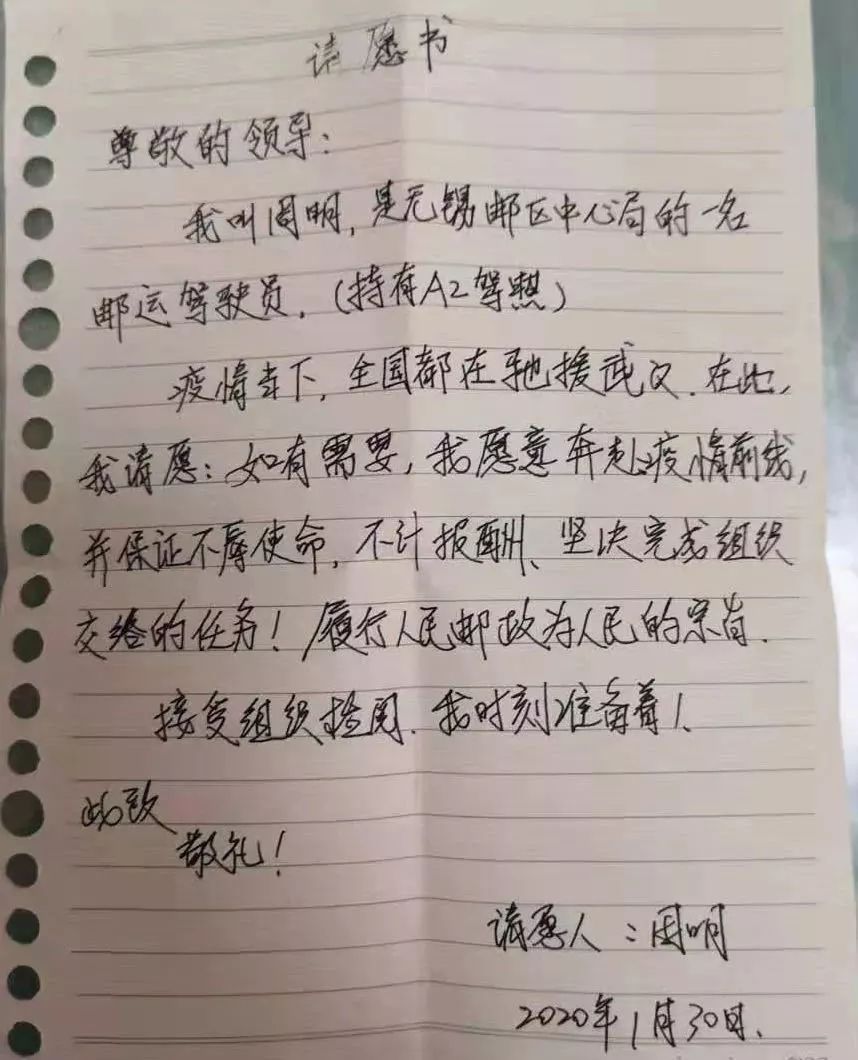 请愿书
尊敬的领导:
我叫周明,是无锡邮区中心局的一名
邮运驾驶员.(持有A2驾照)
疫情当下,全国都在驰援武汉.在此,
我请愿:如有需要,我愿意奔赴疫情前线,
并保证不辱使命,不计报酬、坚决完成组织
交给的任务!履行人民邮政为人民的宗旨.
接受组织挑用.我时刻准备着!、
此致
敬礼!
请愿人:周明
2020年1月30日.